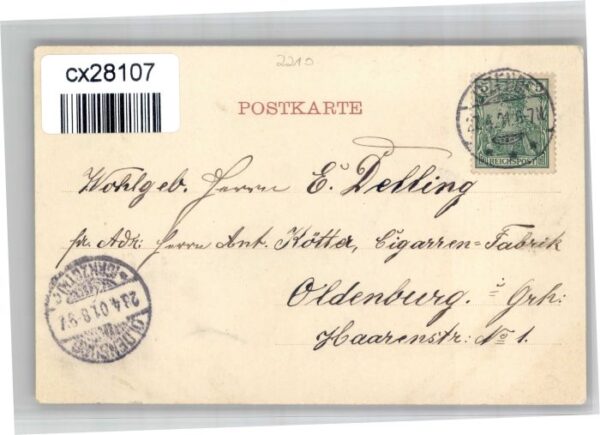 cx28107
2210
POSTKARTE
REICHSPOST
Wohlgeb. Herrn E. Delling
pr. Adr: Herrn Ant. Kötter, Cigarren-Fabrik
Oldenburg. i/ Grh:
Haarenstr: No 1.
OLDENBURG
23.4.01.8-9V